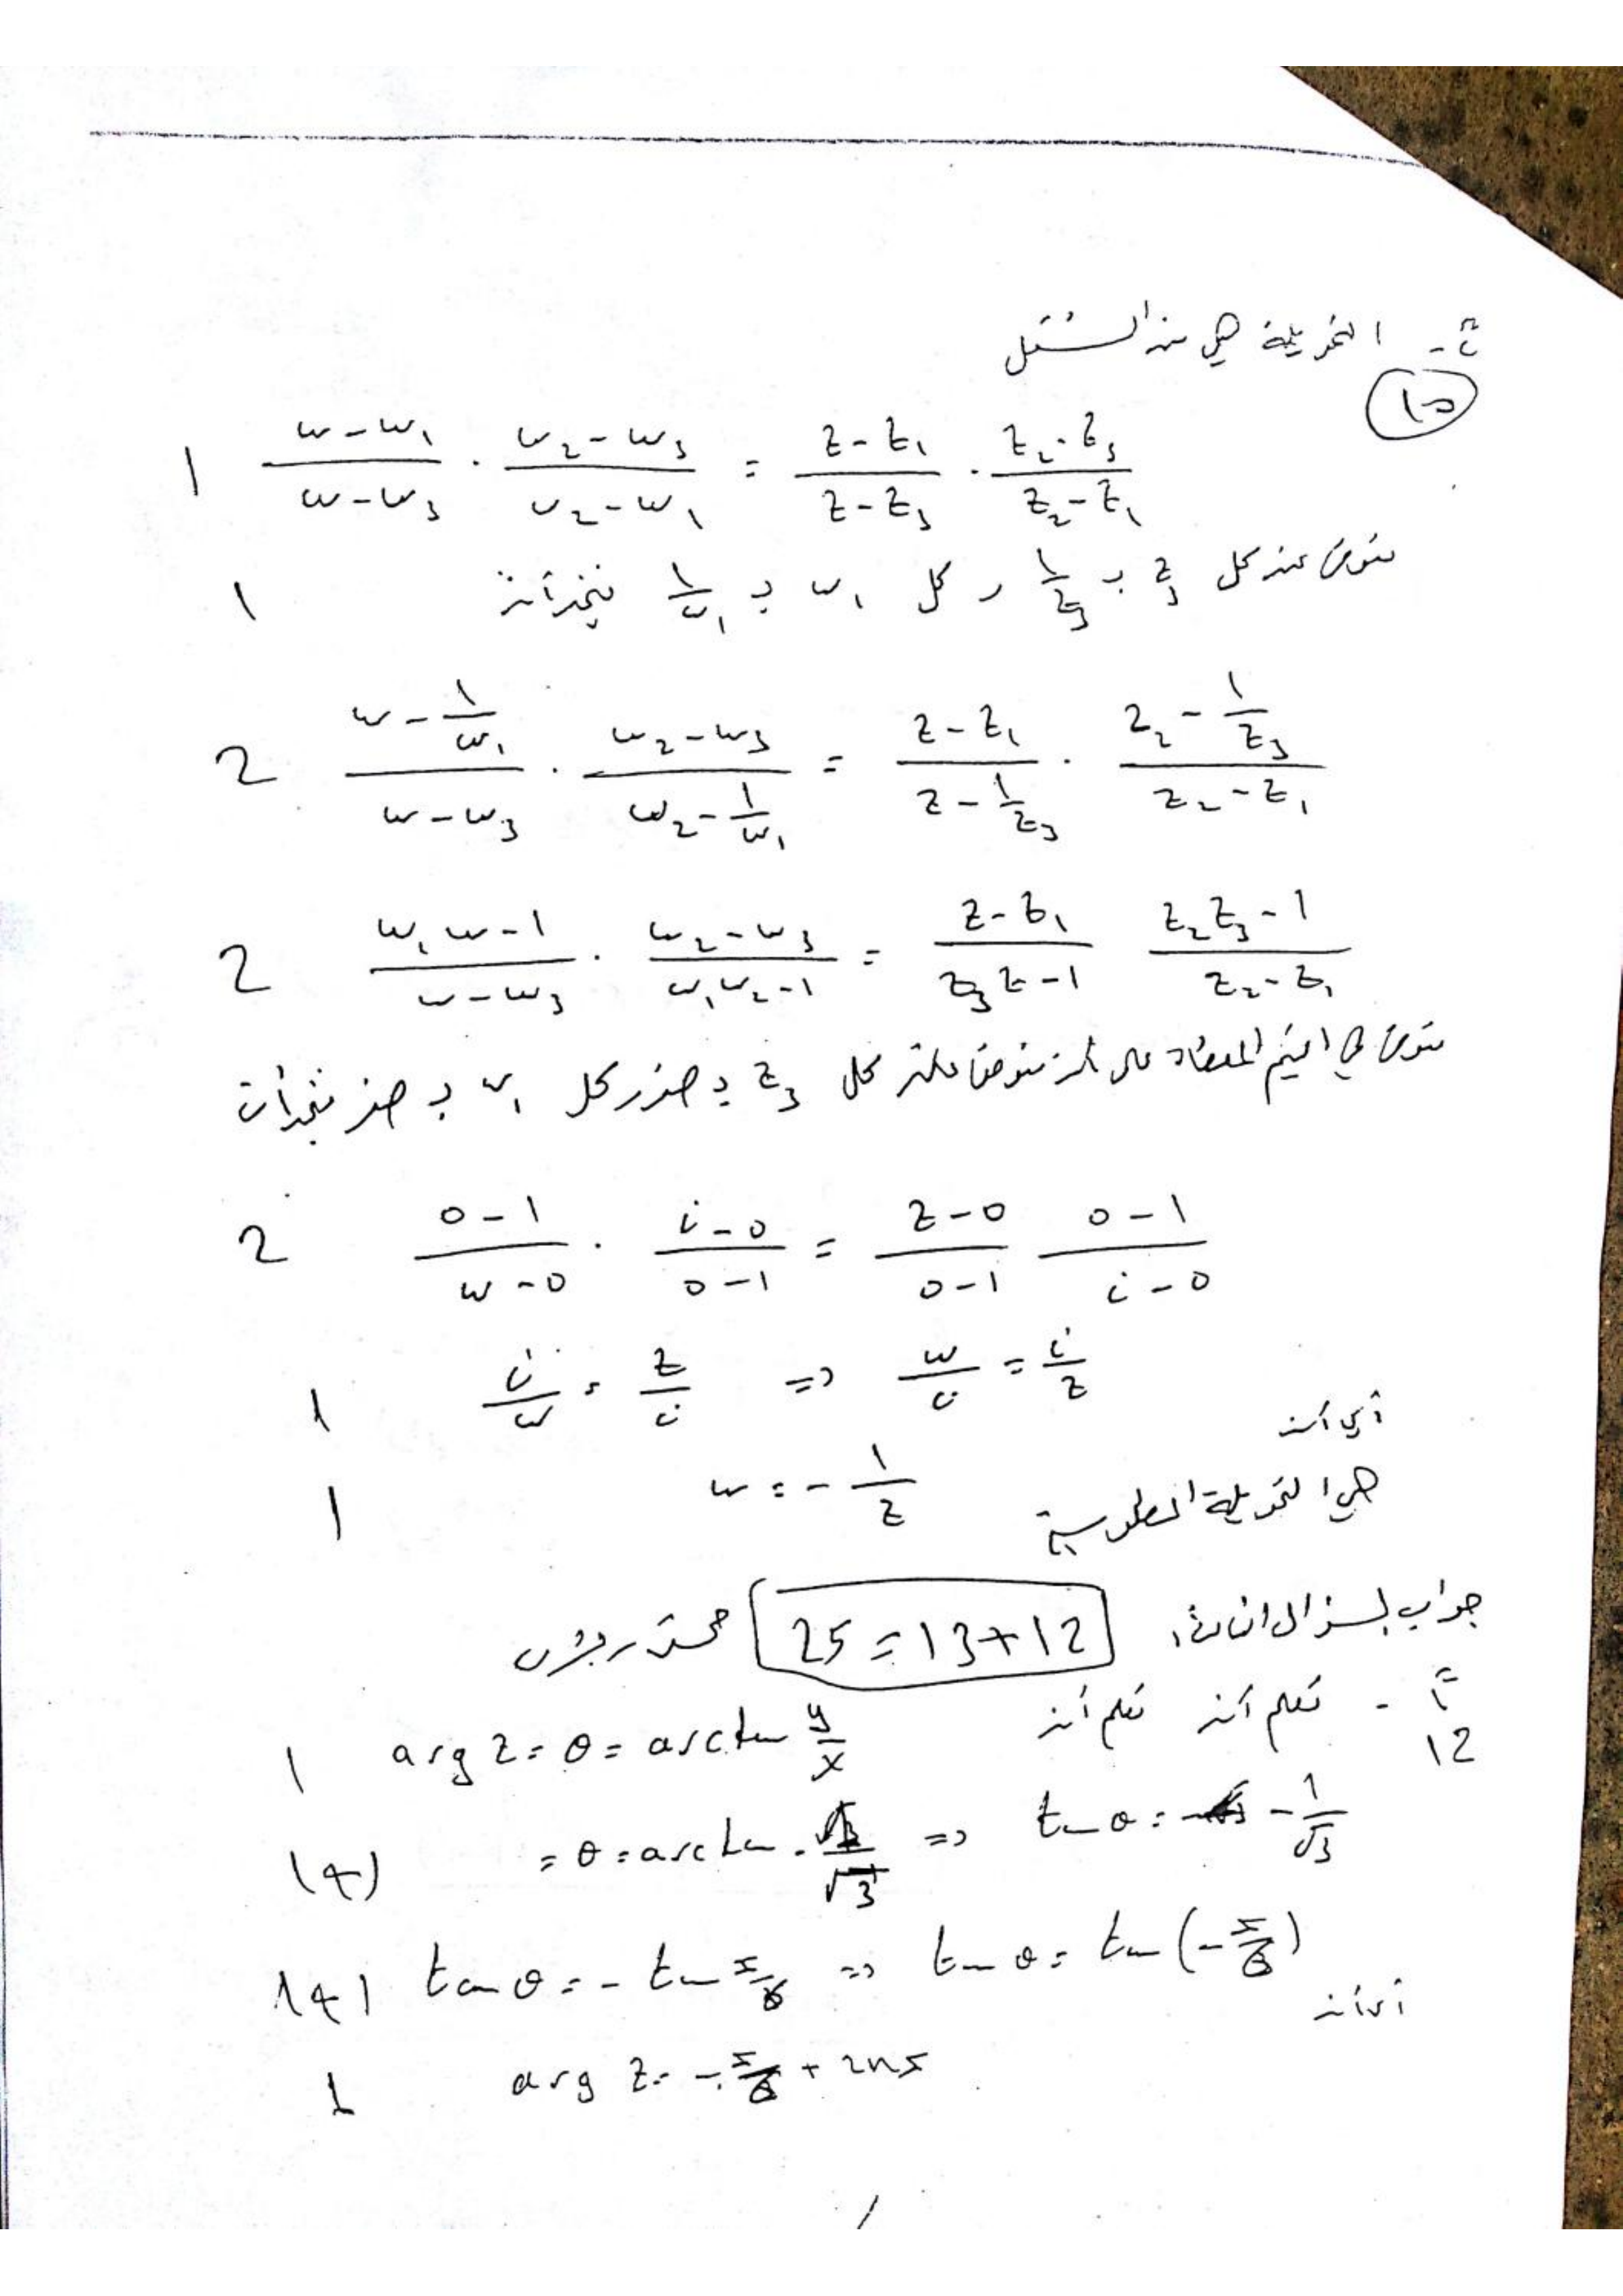 ث- التحويلة هي من الشكل
(10)
1 \frac{w-w_1}{w-w_3} \cdot \frac{w_2-w_3}{w_2-w_1} = \frac{z-z_1}{z-z_3} \cdot \frac{z_2-z_3}{z_2-z_1}
1 نعوض عن كل z_3 بـ \frac{1}{z_3} و كل w_1 بـ \frac{1}{w_1} فنجد أن
2 \frac{w-\frac{1}{w_1}}{w-w_3} \cdot \frac{w_2-w_3}{w_2-\frac{1}{w_1}} = \frac{z-z_1}{z-\frac{1}{z_3}} \cdot \frac{z_2-\frac{1}{z_3}}{z_2-z_1}
2 \frac{w_1w-1}{w-w_3} \cdot \frac{w_2-w_3}{w_1w_2-1} = \frac{z-z_1}{z_3z-1} \frac{z_2z_3-1}{z_2-z_1}
نعوض في القيم المعطاة كل z_3 بـ صفر وكل w_1 بـ صفر فنجد أن
2 \frac{0-1}{w-0} \cdot \frac{i-0}{0-1} = \frac{z-0}{0-1} \frac{0-1}{i-0}
1 \frac{i}{w} = \frac{z}{i} => \frac{w}{i} = \frac{i}{z}
أي أن
1 w = -\frac{1}{z} هي التحويلة المطلوبة
جواب السؤال الثالث: 25 = 13+12
أ - نعلم أن نعلم أن
12
1 arg z = θ = arctan \frac{y}{x}
(1+1) = θ = arctan - \frac{1}{\sqrt{3}} => tan θ = -\frac{1}{\sqrt{3}}
1+1 tan θ = - tan \frac{π}{6} => tan θ = tan (-\frac{π}{6})
أي أن
1 arg z = -\frac{π}{6} + 2nπ